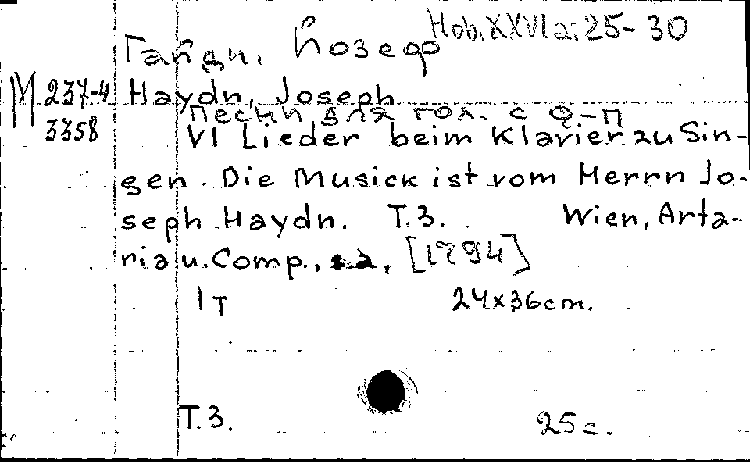 Hob. XXVIa: 25-30
Гайдн, Йозеф
М 237-4 Haydn, Joseph
3358
Песни для гол. с ф-п
VI Lieder beim Klavier zu Sin-
gen. Die Musick ist vom Herrn Jo-
seph Haydn. T. 3. Wien, Arta-
ria u. Comp., s.a. [1794]
1 т 24x36cm.
T. 3. 25 с.